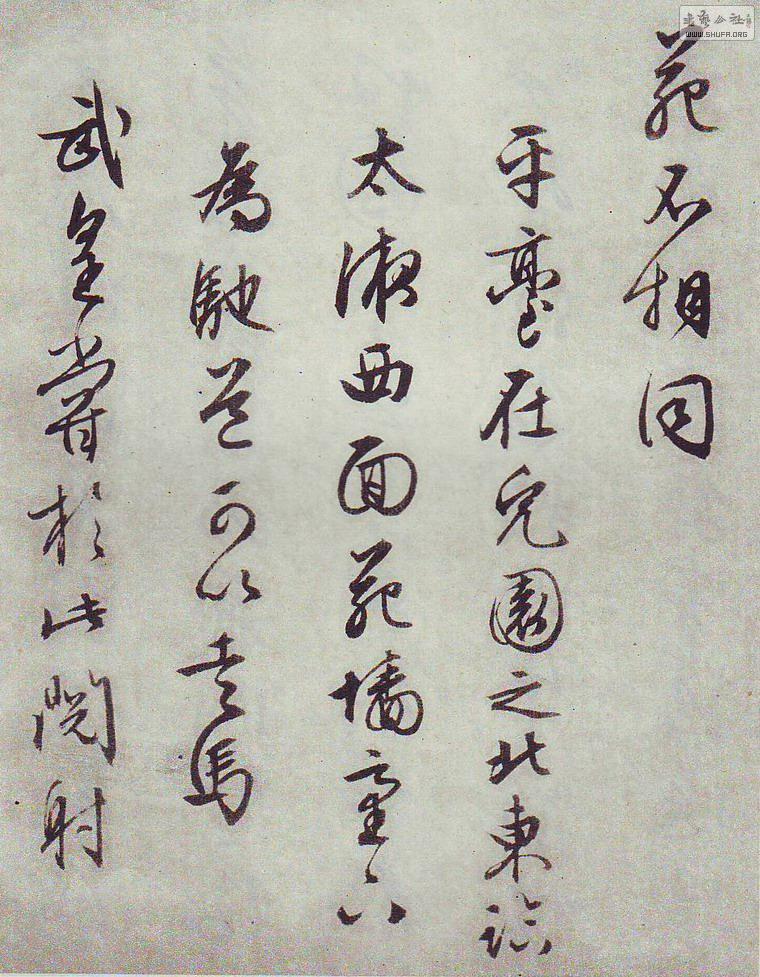 苑不相同
平臺在兔園之北東臨
太液西面苑墻臺下
為馳道可以走馬
武皇嘗於此閱射
书艺公社
WWW.SHUFA.ORG